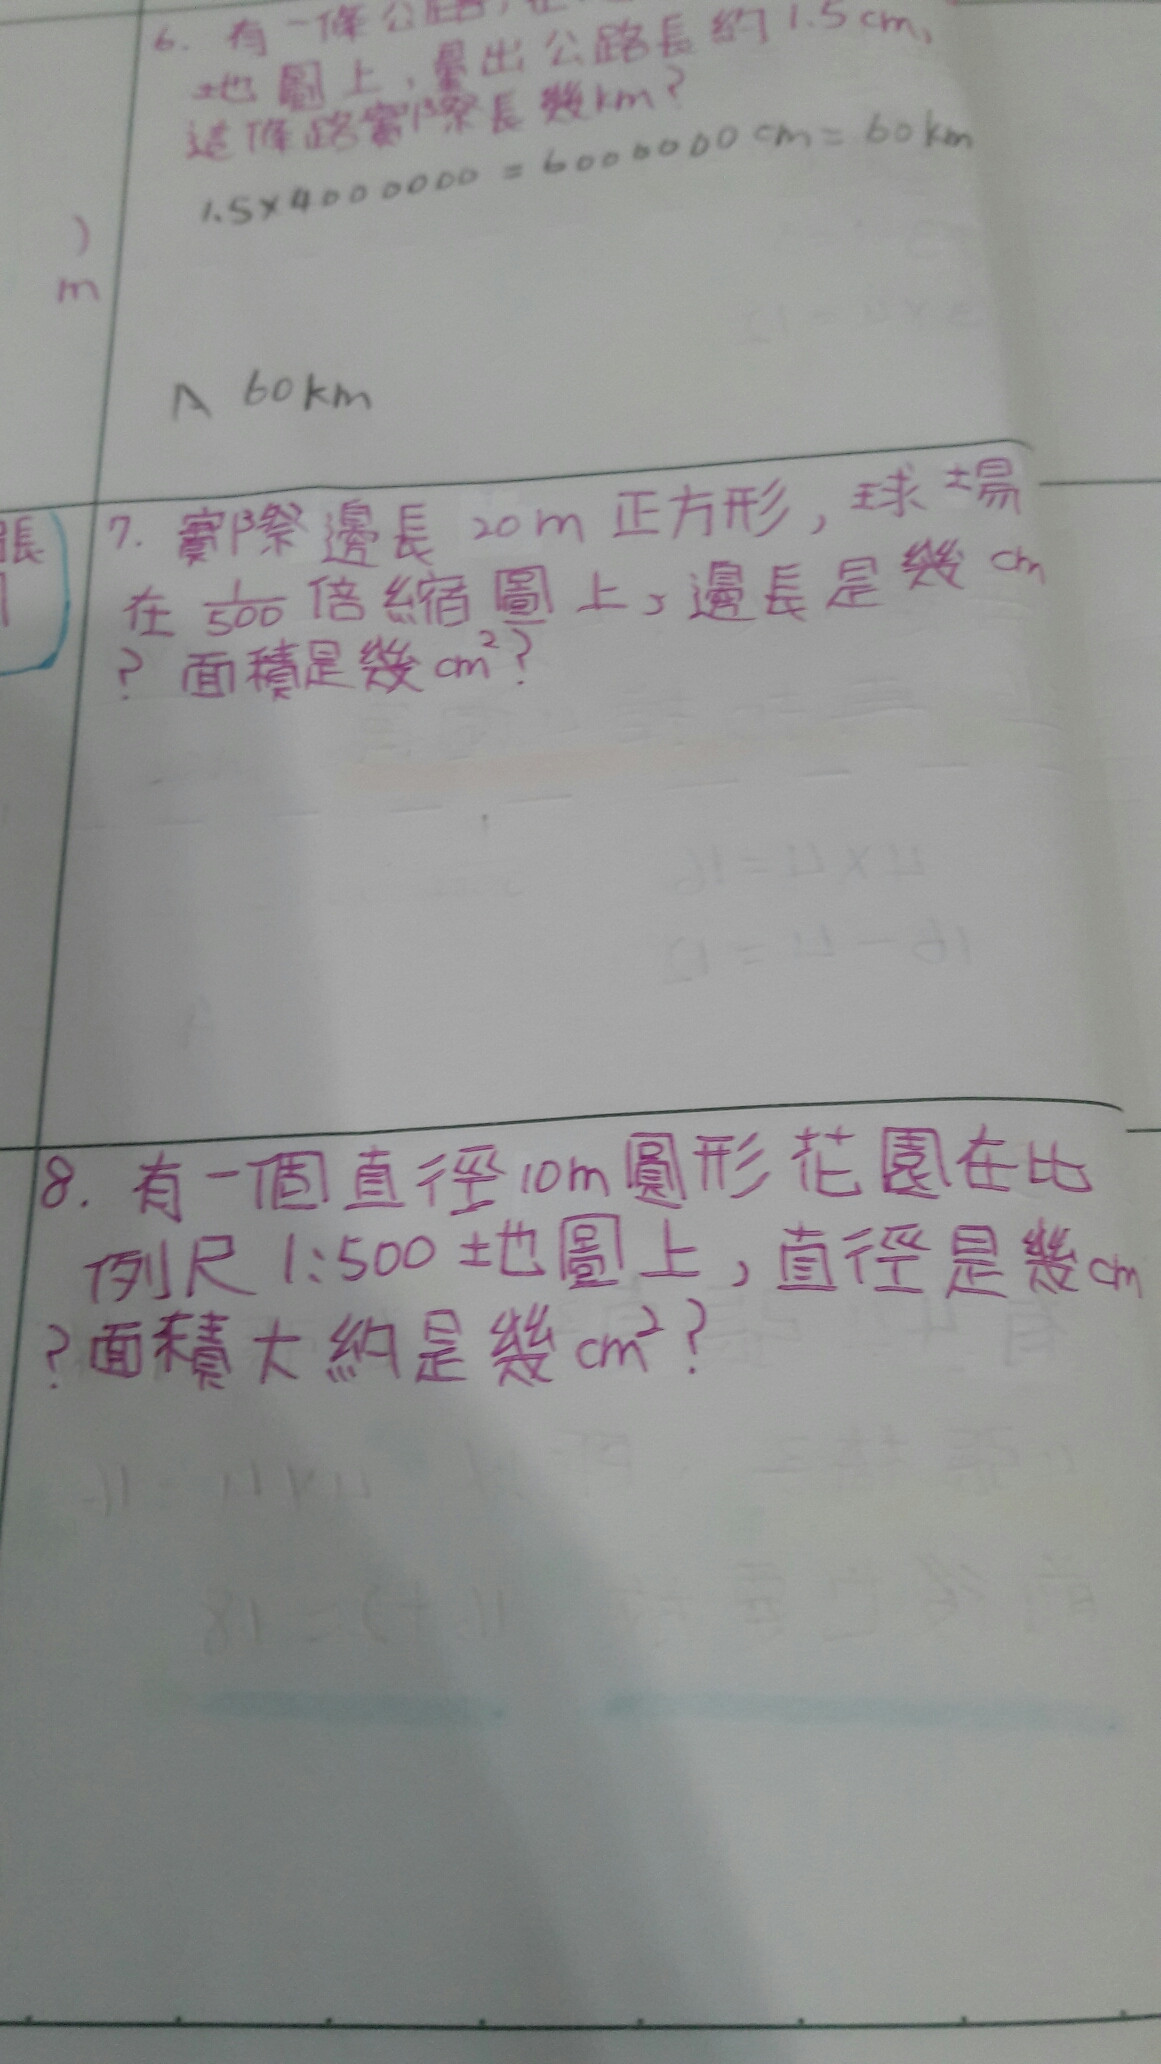 6. 有一條公路,在
地圖上,量出公路長約1.5cm,
這條路實際長幾km?
1.5×4000000=6000000cm=60km
)
m
A 60km
張
7. 實際邊長20m正方形,球場
在1/500倍縮圖上,邊長是幾cm
?面積是幾cm²?
8. 有一個直徑10m圓形花園在比
例尺1:500地圖上,直徑是幾cm
?面積大約是幾cm²?